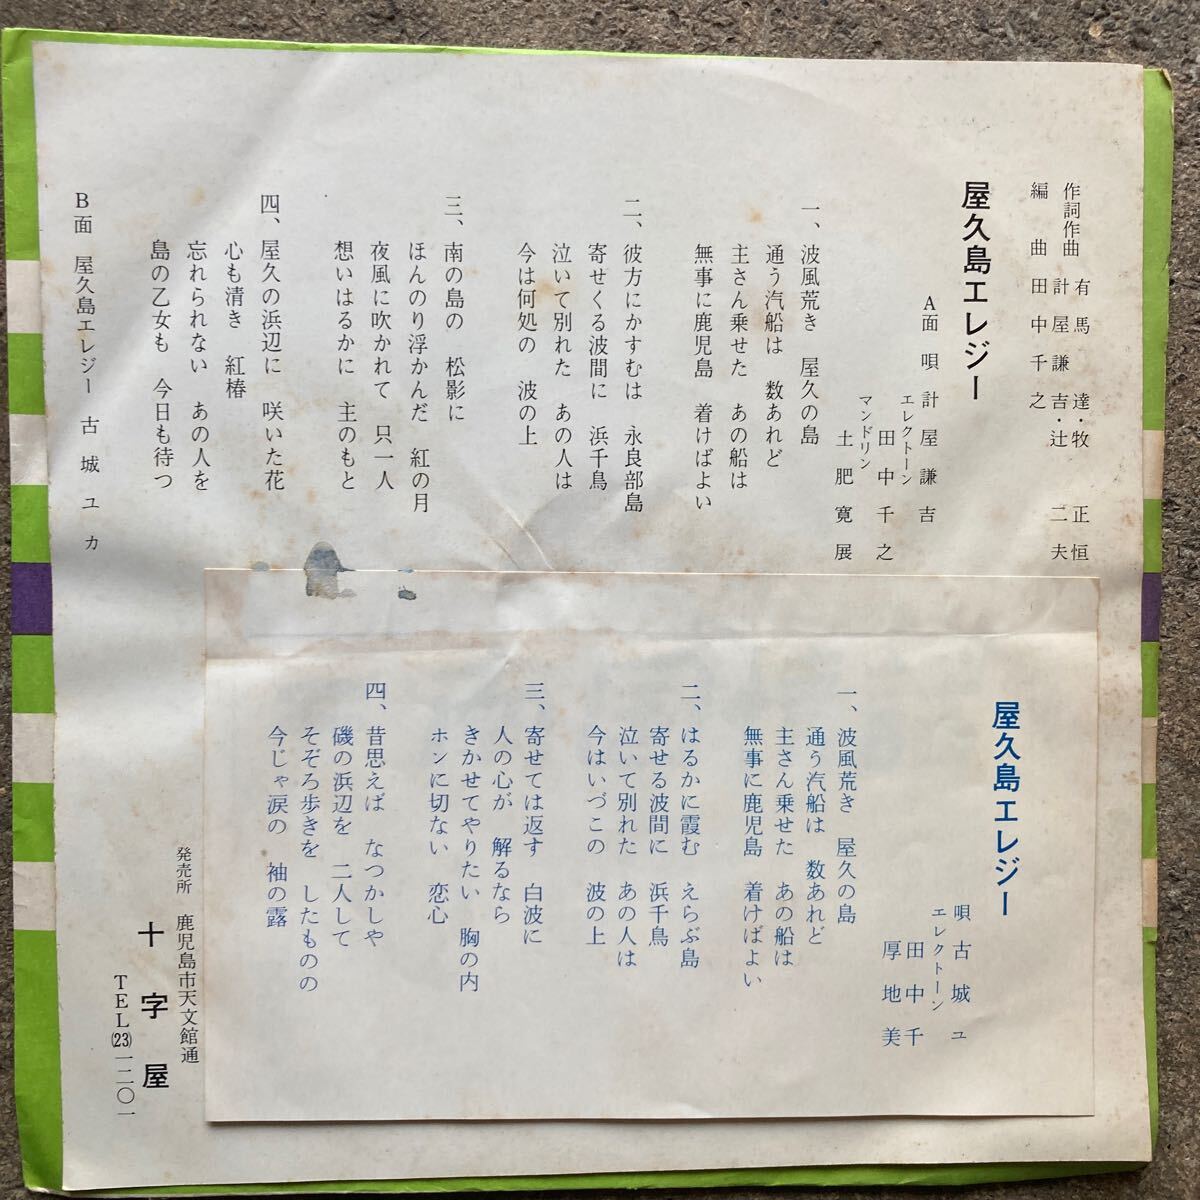 作詞作曲 有馬達・牧正恒
計屋謙吉・辻二夫
編曲 田中千之
屋久島エレジー
A面 唄 計屋謙吉
エレクトーン
田中千之
マンドリン
土肥寛展
一、波風荒き 屋久の島
通う汽船は 数あれど
主さん乗せた あの船は
無事に鹿児島 着けばよい
二、彼方にかすむは 永良部島
寄せくる波間に 浜千鳥
泣いて別れた あの人は
今は何処の 波の上
三、南の島の 松影に
ほんのり浮かんだ 紅の月
夜風に吹かれて 只一人
想いはるかに 主のもと
四、屋久の浜辺に 咲いた花
心も清き 紅椿
忘れられない あの人を
島の乙女も 今日も待つ
B面 屋久島エレジー 古城ユカ
屋久島エレジー
唄 古城ユ
エレクトーン
田中千
厚地美
一、波風荒き 屋久の島
通う汽船は 数あれど
主さん乗せた あの船は
無事に鹿児島 着けばよい
二、はるかに霞む えらぶ島
寄せる波間に 浜千鳥
泣いて別れた あの人は
今はいづこの 波の上
三、寄せては返す 白波に
人の心が 解るなら
きかせてやりたい 胸の内
ホンに切ない 恋心
四、昔思えば なつかしや
磯の浜辺を 二人して
そぞろ歩きを したものの
今じゃ涙の 袖の露
発売所 鹿児島市天文館通
十字屋
TEL(23)一二〇一